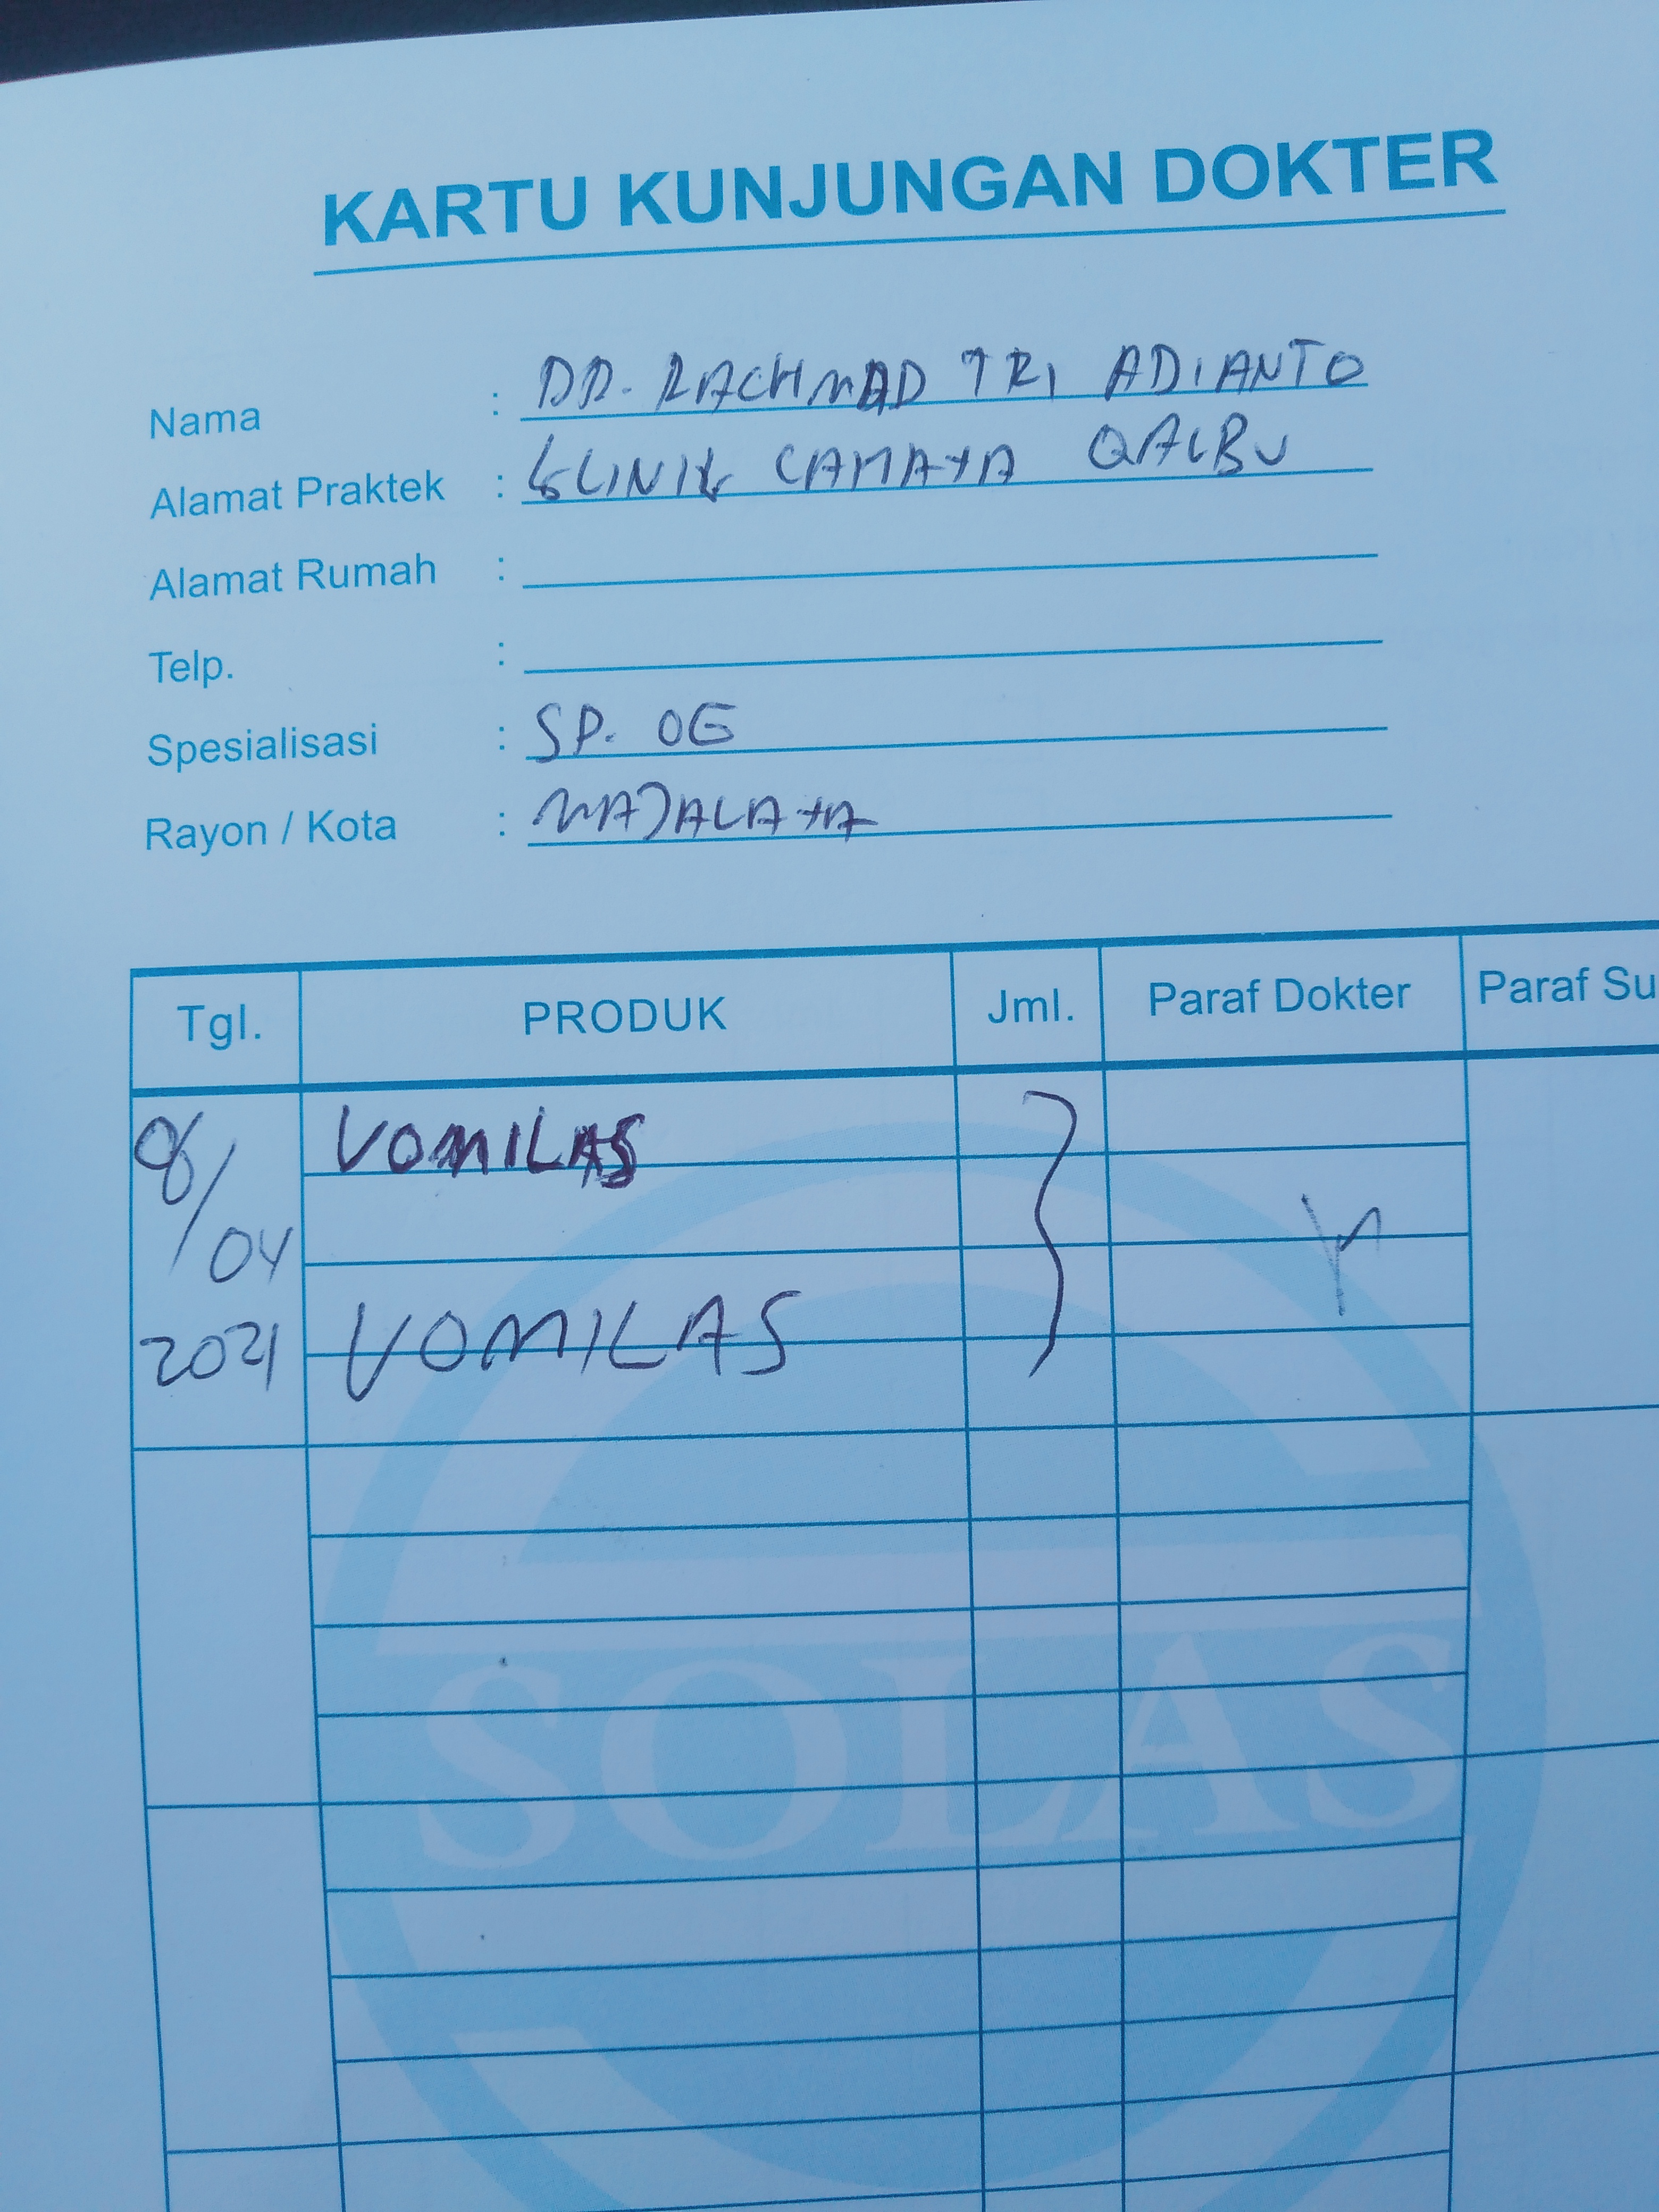 KARTU KUNJUNGAN DOKTER
Nama : DR. RACHMAD TRI ADIANTO
Alamat Praktek : KLINIK CAMAYA QALBU
Alamat Rumah :
Telp. :
Spesialisasi : SP. OG
Rayon / Kota : MAJALAYA
Tgl. PRODUK Jml. Paraf Dokter Paraf Su
8/04 VOMILAS
2021 VOMILAS
SOLAS